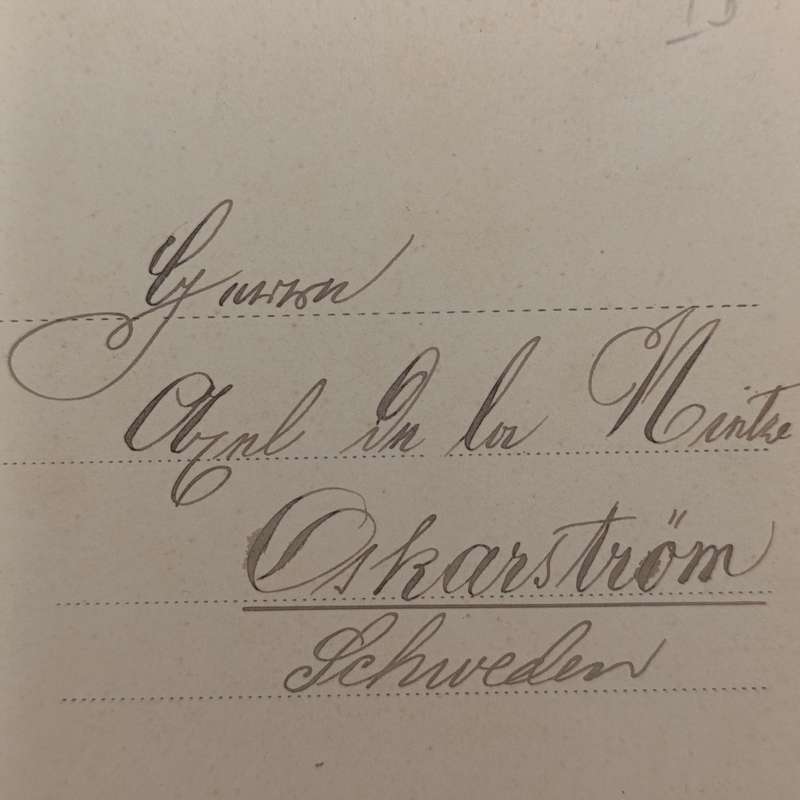 Herrn
Axel de la
Oskarström
Schweden